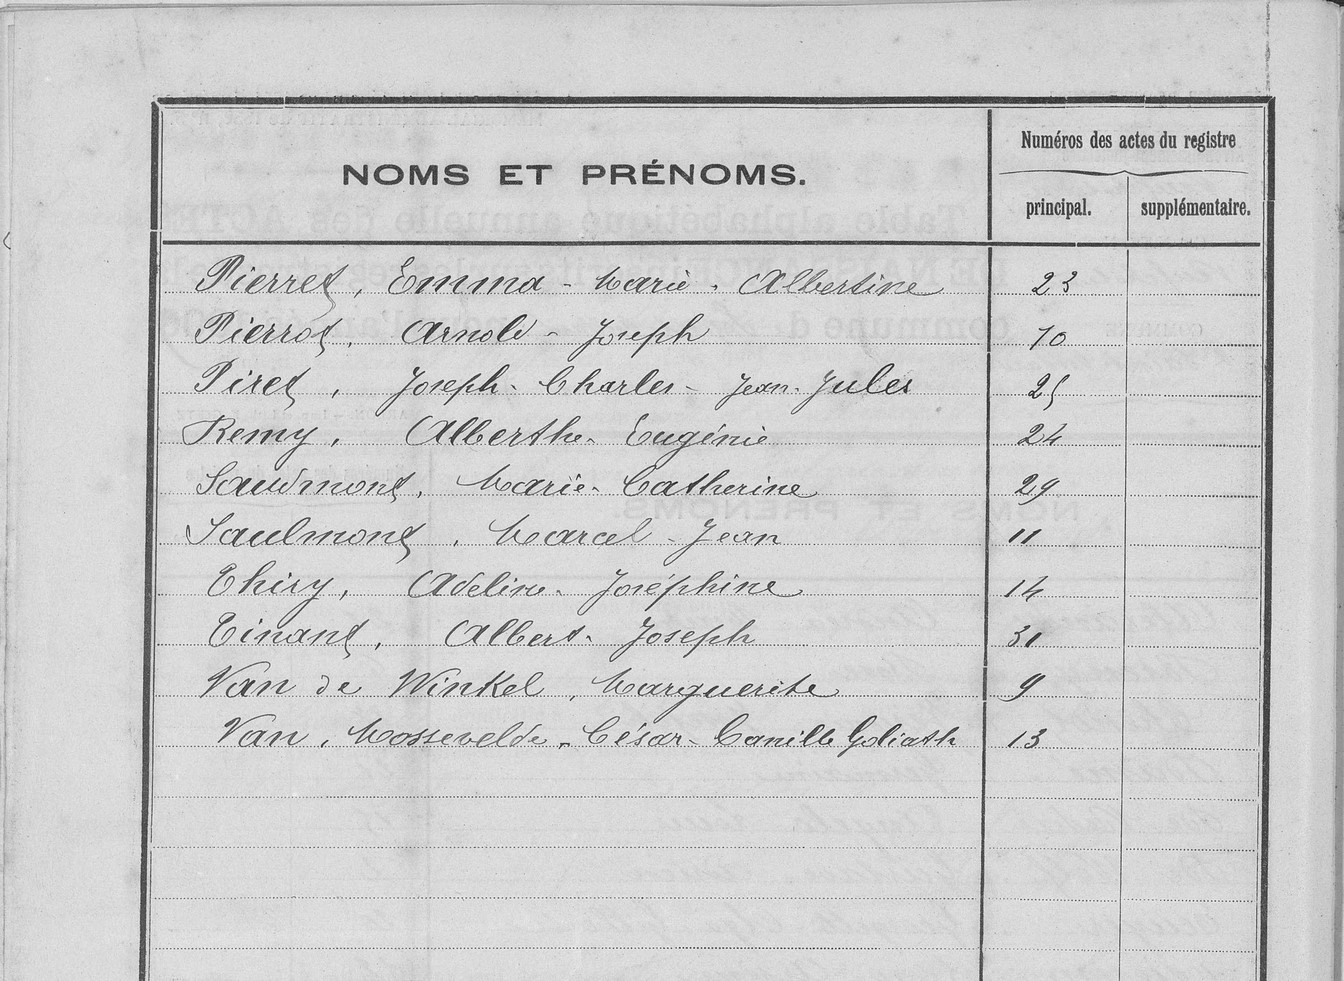 NOMS ET PRÉNOMS.
Numéros des actes du registre
principal. supplémentaire.
Pierret, Emma - Marie - Albertine 23
Pierrot, Arnold - Joseph 10
Piret, Joseph - Charles - Jean - Jules 25
Remy, Alberthe - Eugénie 24
Saudmont, Marie - Catherine 29
Saulmont, Marcel - Jean 11
Thiry, Adeline - Joséphine 14
Tinant, Albert - Joseph 31
Van de Winkel, Marguerite 9
Van, Mossevelde - César - Camille Goliath 13